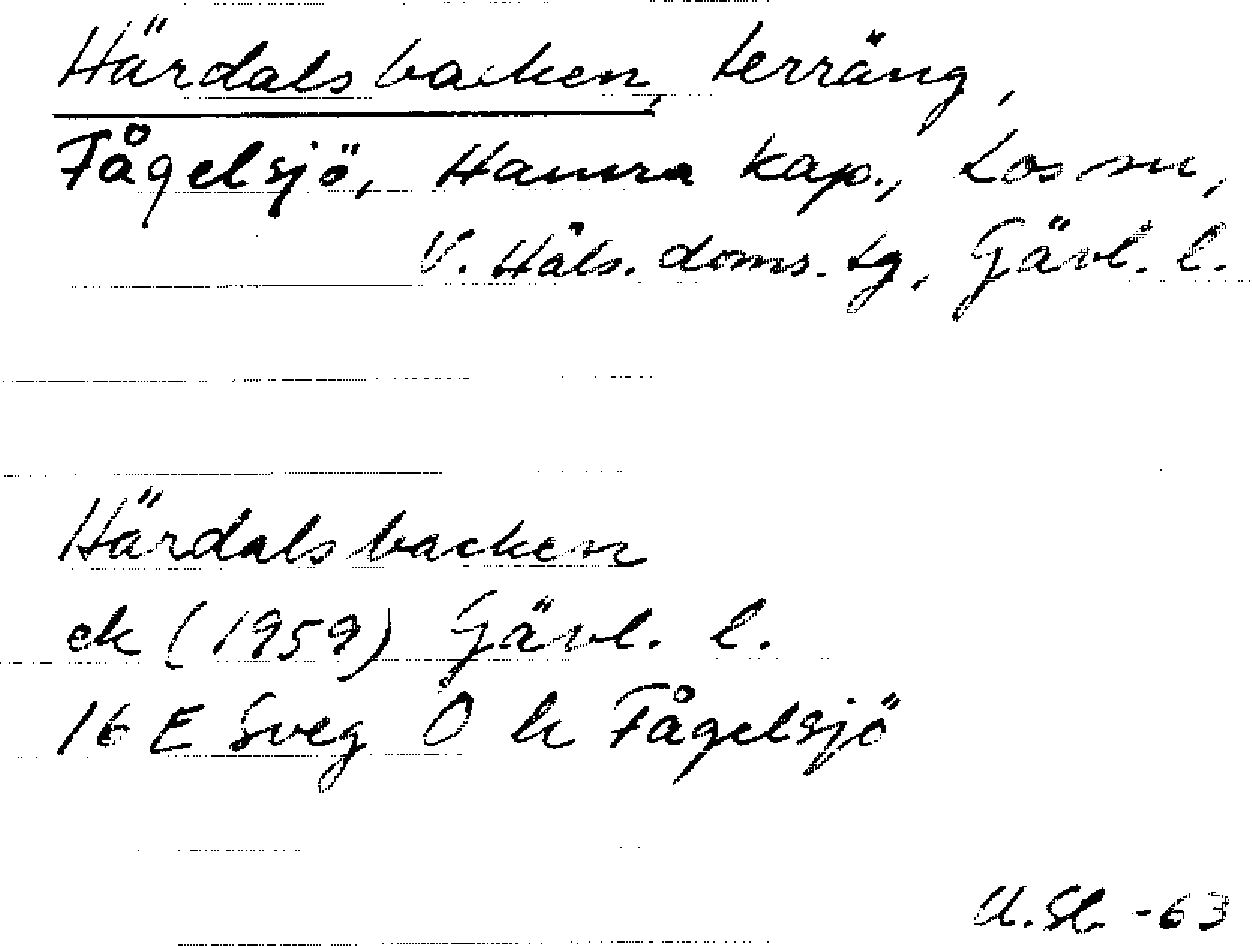 Härdalsbacken, terräng,
Fågelsjö, Hamra kap., Los sn,
V. Häls. doms. tg, Gävl. l.
Härdalsbacken
ek (1959) Gävl. l.
16 E Sveg O k Fågelsjö
-63